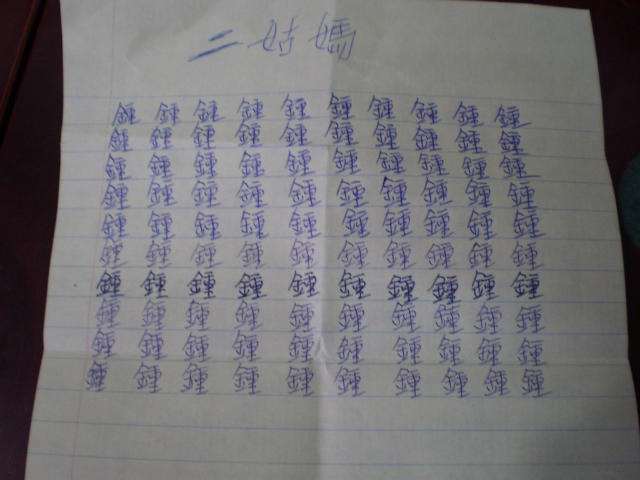 二姑媽
鍾鍾鍾鍾鍾鍾鍾鍾鍾鍾
鍾鍾鍾鍾鍾鍾鍾鍾鍾鍾
鍾鍾鍾鍾鍾鍾鍾鍾鍾鍾
鍾鍾鍾鍾鍾鍾鍾鍾鍾鍾
鍾鍾鍾鍾鍾鍾鍾鍾鍾鍾
鍾鍾鍾鍾鍾鍾鍾鍾鍾鍾
鍾鍾鍾鍾鍾鍾鍾鍾鍾鍾
鍾鍾鍾鍾鍾鍾鍾鍾鍾鍾
鍾鍾鍾鍾鍾鍾鍾鍾鍾鍾
鍾鍾鍾鍾鍾鍾鍾鍾鍾鍾